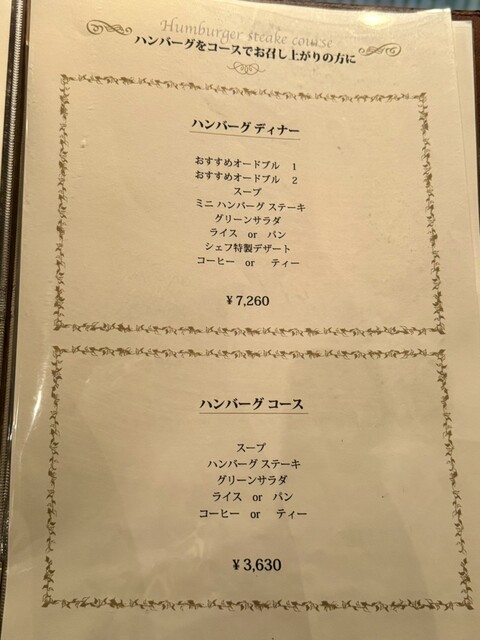 Humburger steake course
ハンバーグをコースでお召し上がりの方に
ハンバーグ ディナー
おすすめオードブル 1
おすすめオードブル 2
スープ
ミニ ハンバーグ ステーキ
グリーンサラダ
ライス or パン
シェフ特製デザート
コーヒー or ティー
¥7,260
ハンバーグ コース
スープ
ハンバーグ ステーキ
グリーンサラダ
ライス or パン
コーヒー or ティー
¥3,630